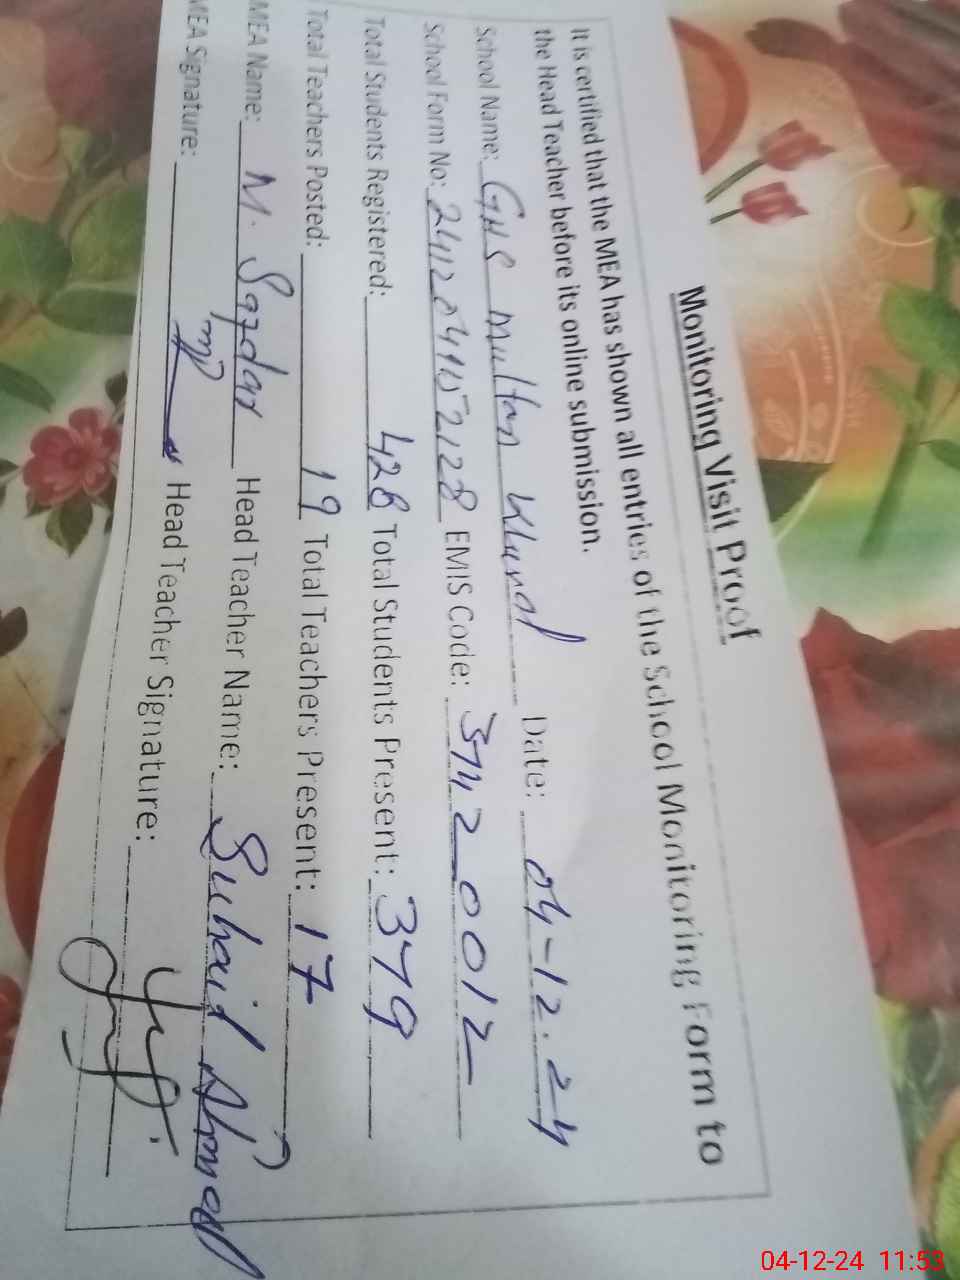 Monitoring Visit Proof
It is certified that the MEA has shown all entries of the School Monitoring Form to
the Head Teacher before its online submission.
School Name: GHS Multan Khurd Date: 04-12.24
School Form No: EMIS Code: 37420012
Total Students Registered: 428 Total Students Present: 379
Total Teachers Posted: 19 Total Teachers Present: 17
MEA Name: M. Safdar Head Teacher Name: Suhail Ahmad
MEA Signature: Head Teacher Signature:
04-12-24 11:53